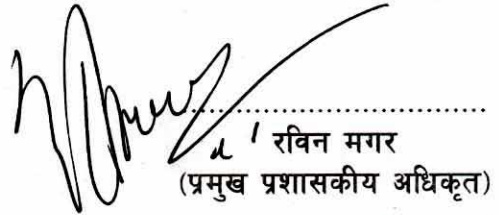 रविन मगर
(प्रमुख प्रशासकीय अधिकृत)